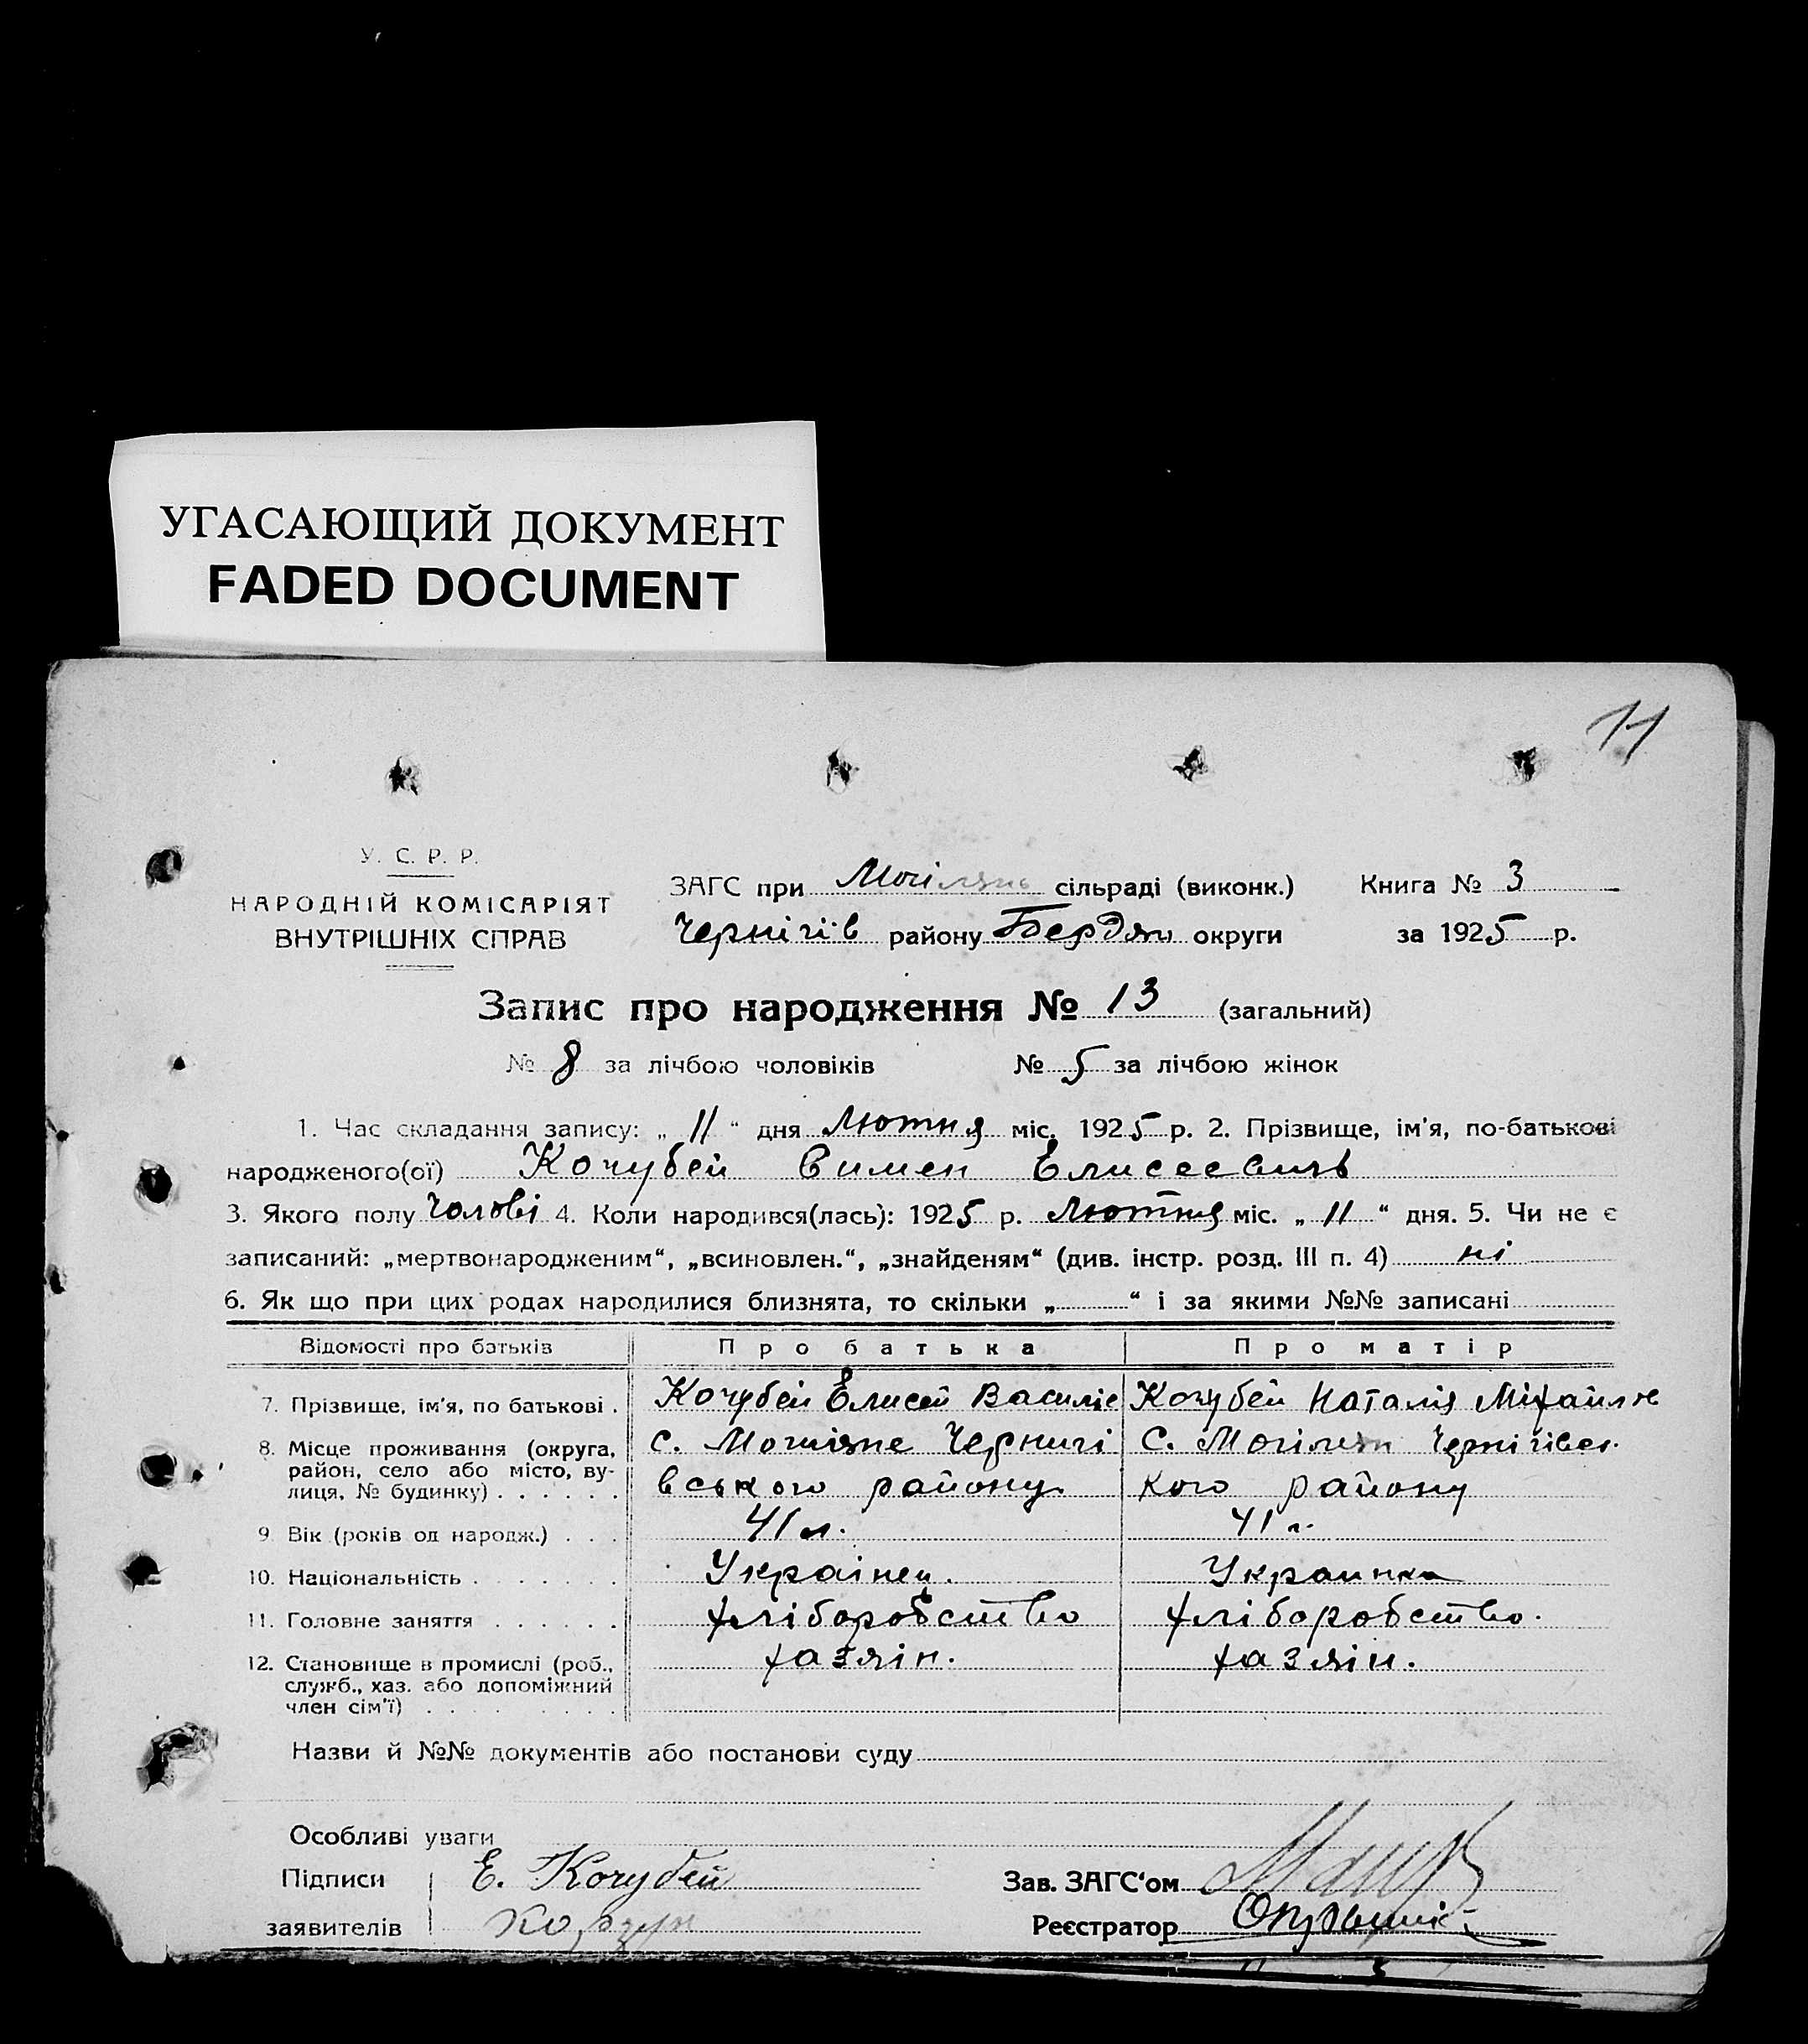 УГАСАЮЩИЙ ДОКУМЕНТ
FADED DOCUMENT
11
У. С. Р. Р.
НАРОДНІЙ КОМІСАРІЯТ
ВНУТРІШНІХ СПРАВ
ЗАГС при Могілянс сільраді (виконк.) Книга № 3
Чернігів району Бердян округи за 1925 р.
Запис про народження № 13 (загальний)
№ 8 за лічбою чоловіків № 5 за лічбою жінок
1. Час складання запису: „ 11 “ дня Лютня міс. 1925 р. 2. Прізвище, ім'я, по-батькові
народженого(ої) Кочубей Симен Елисеевичь
3. Якого полу чолові 4. Коли народився(лась): 1925 р. Лютня міс. „ 11 “ дня. 5. Чи не є
записаний: „мертвонародженим“, „всиновлен.“, „знайденям“ (див. інстр. розд. III п. 4) ні
6. Як що при цих родах народилися близнята, то скільки „ “ і за якими №№ записані
Відомості про батьків Про батька Про матір
7. Прізвище, ім'я, по батькові . Кочубей Елисей Василіе Кочубей Наталія Міхайлов
8. Місце проживання (округа, район, село або місто, вулиця, № будинку) . . . . . . с. Могиляне Черниги С. Могілян Чернігівсь.
вського району кого району
9. Вік (років од народж.) . . . 41 л. 41 г.
10. Національність . . . . . . . Українец. Украинка
11. Головне заняття . . . . . . хліборобство хліборобство.
12. Становище в промислі (роб., хазяін. хазяін.
служб., хаз. або допоміжний
член сім'ї) . . . . . . . . .
Назви й №№ документів або постанови суду
Особливі уваги
Підписи Е. Кочубей Зав. ЗАГС‘ом
заявителів Реєстратор